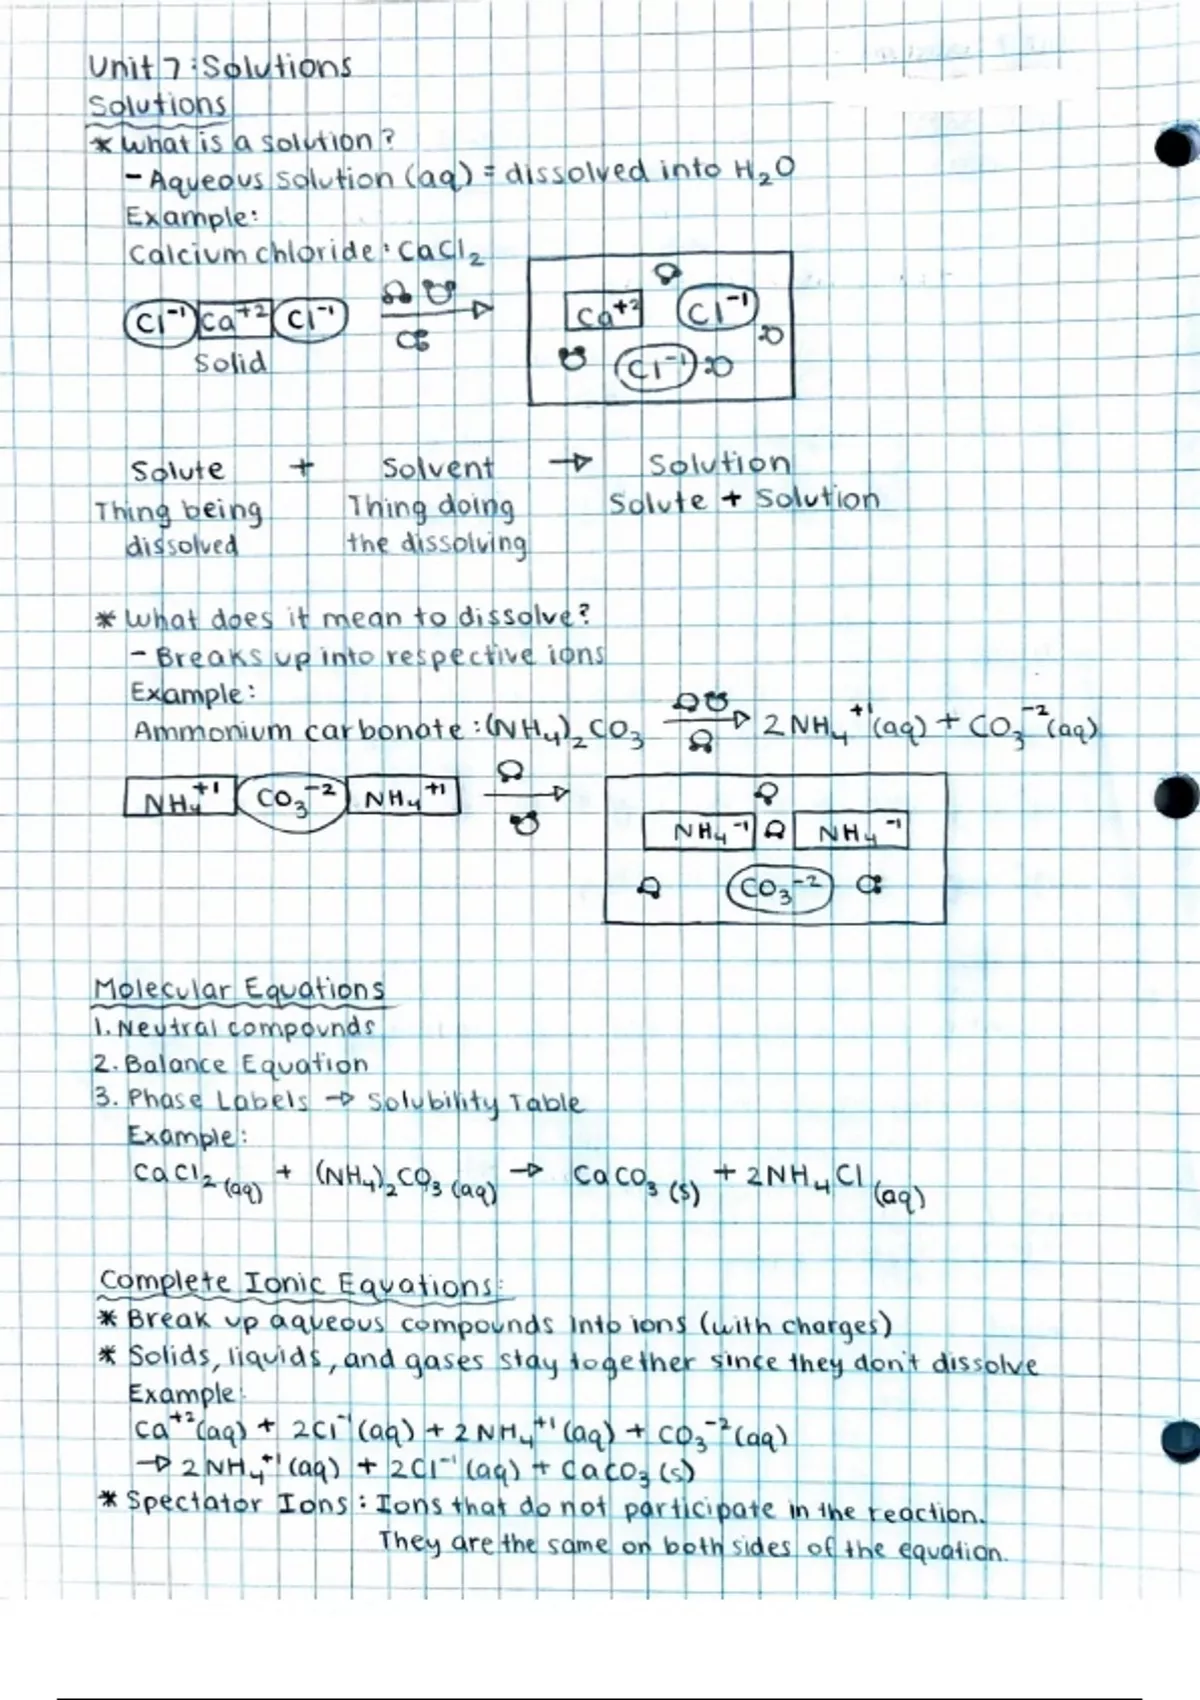 Unit 7: Solutions
Solutions
* What is a solution?
- Aqueous solution (aq) = dissolved into H₂O
Example:
Calcium chloride: CaCl₂
Cl⁻¹ Ca⁺² Cl⁻¹
Solid
Ca⁺² Cl⁻¹
Cl⁻¹
Solute + Solvent → Solution
Thing being Thing doing Solute + Solution
dissolved the dissolving
* What does it mean to dissolve?
- Breaks up into respective ions
Example:
Ammonium carbonate: (NH₄)₂CO₃ → 2NH₄⁺¹(aq) + CO₃⁻²(aq)
NH₄⁺¹ CO₃⁻² NH₄⁺¹ →
NH₄⁻¹ NH₄⁻¹
CO₃⁻²
Molecular Equations
1. Neutral compounds
2. Balance Equation
3. Phase Labels → Solubility Table
Example:
CaCl₂ (aq) + (NH₄)₂CO₃ (aq) → CaCO₃ (s) + 2NH₄Cl (aq)
Complete Ionic Equations:
* Break up aqueous compounds into ions (with charges)
* Solids, liquids, and gases stay together since they don't dissolve
Example:
Ca⁺²(aq) + 2Cl⁻¹(aq) + 2NH₄⁺¹(aq) + CO₃⁻²(aq)
→ 2NH₄⁺¹(aq) + 2Cl⁻¹(aq) + CaCO₃(s)
* Spectator Ions: Ions that do not participate in the reaction.
They are the same on both sides of the equation.